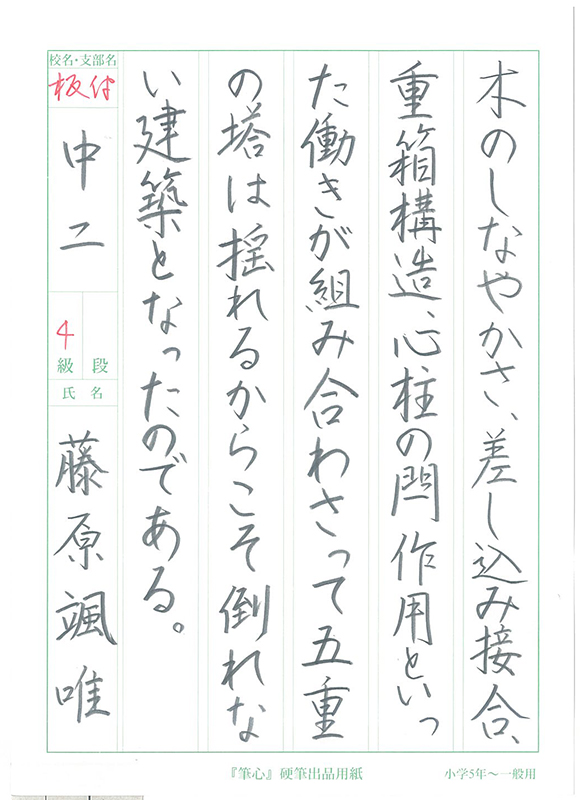 木のしなやかさ、差し込み接合、
重箱構造、心柱の閂作用といっ
た働きが組み合わさって五重
の塔は揺れるからこそ倒れな
い建築となったのである。
校名・支部名
板付
中二
4
級 段
氏 名
藤原颯唯
『筆心』硬筆出品用紙
小学5年〜一般用